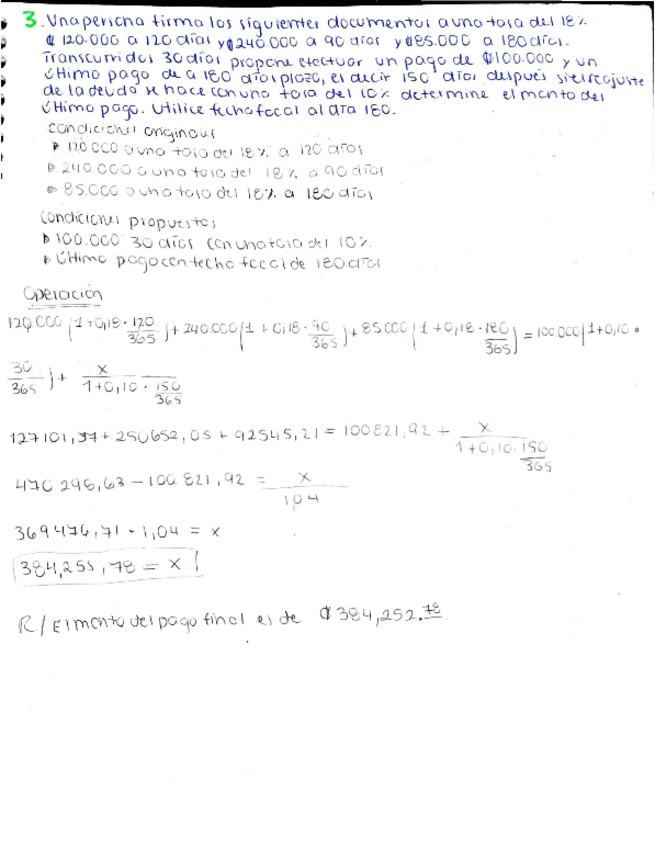 3. Una persona firma los siguientes documentos a una tasa del 18%
₡ 120.000 a 120 días y ₡240.000 a 90 días y ₡85.000 a 180 días.
Transcurridos 30 días propone efectuar un pago de ₡100.000 y un
último pago de a 180 días plazo, es decir 150 días después si el reajuste
de la deuda se hace con una tasa del 10% determine el monto del
último pago. Utilice fecha focal al día 180.
Condiciones originales
120 000 a una tasa del 18% a 120 días
240.000 a una tasa del 18% a 90 días
85.000 a una tasa del 18% a 180 días
Condiciones propuestas
100.000 30 días con una tasa del 10%
Último pago con fecha focal de 180 días
Operación
120 000 (1+0,18·120/365)+240.000(1+0,18·90/365)+85 000(1+0,18·180/365)=100.000(1+0,10·
30/365)+ x/1+0,10·150/365
127101,37+250652,05+92545,21=100821,92+ x/1+0,10·150/365
470 298,63-100 821,92 = x/1,04
369476,71·1,04 = x
384,255,78 = x
R/El monto del pago final es de ₡384,252.78